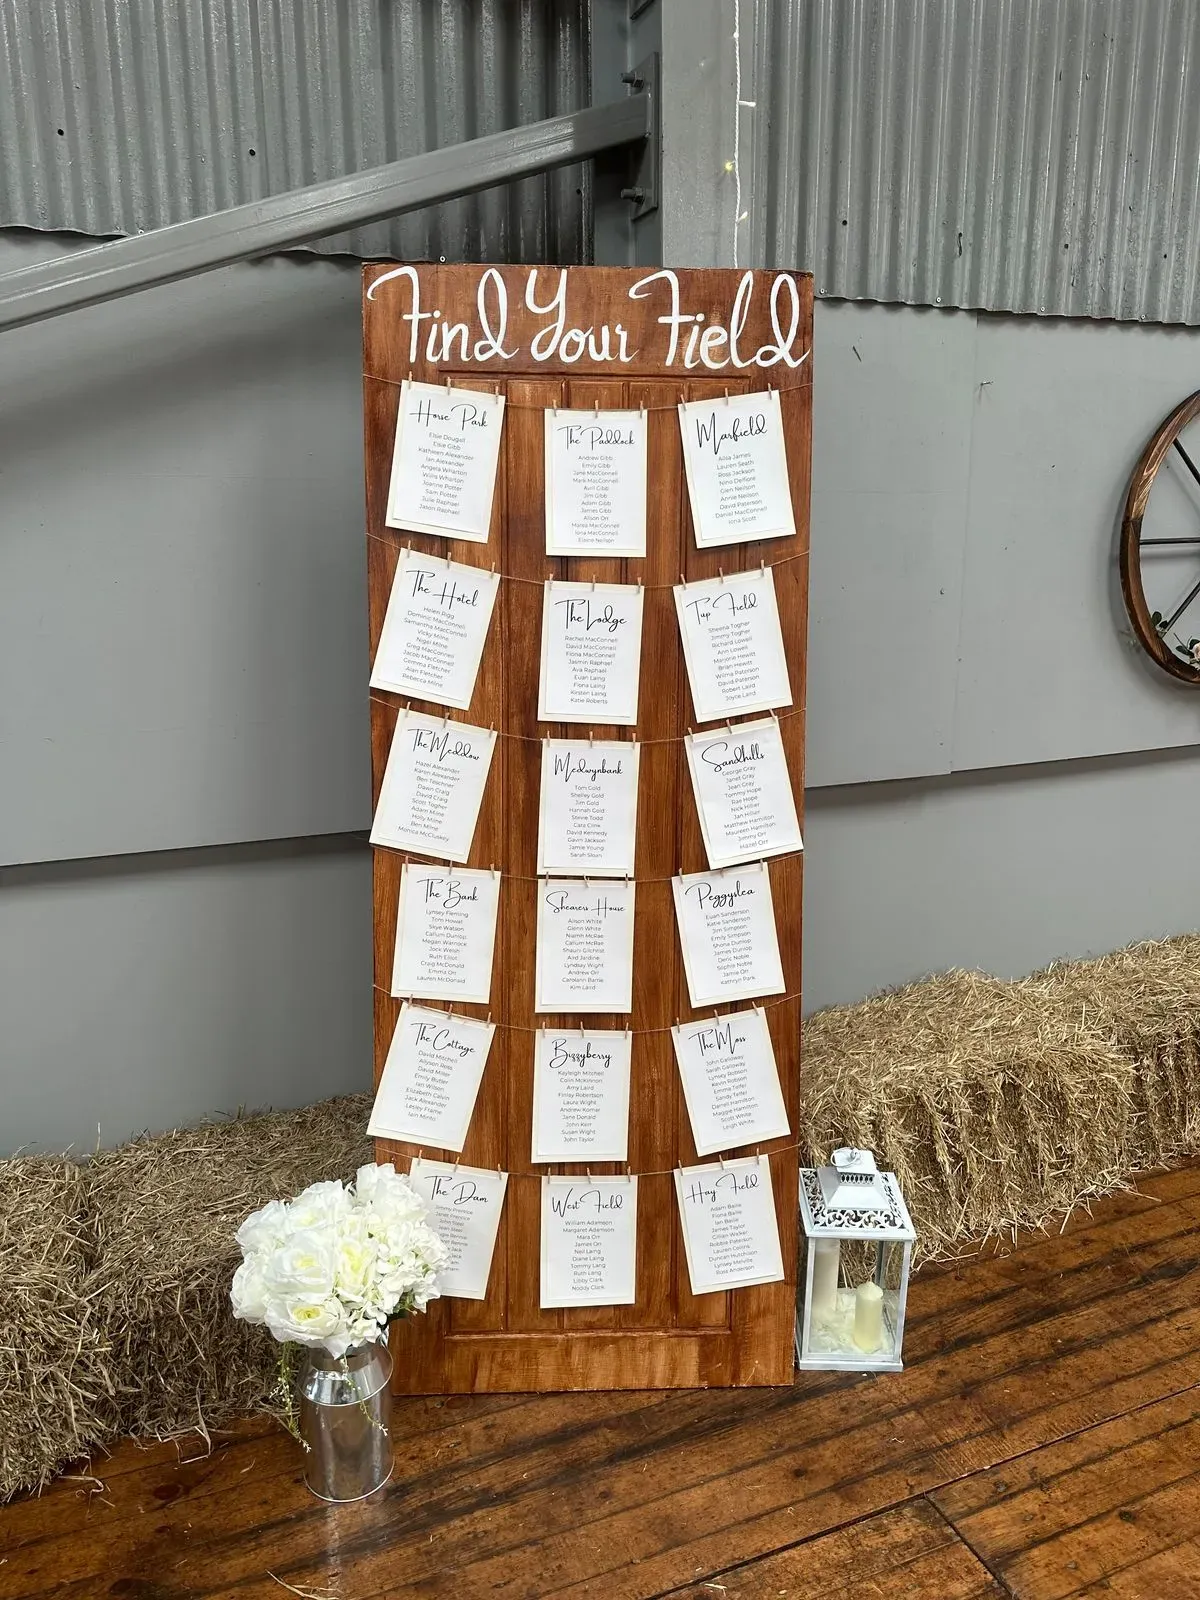 Find Your Field
Horse Park
Elsie Dougall
Elsie Gibb
Kathleen Alexander
Ian Alexander
Angela Wharton
Willis Wharton
Joanne Potter
Sam Potter
Julie Raphael
Jason Raphael
The Paddock
Andrew Gibb
Emily Gibb
Jane MacConnell
Mark MacConnell
Avril Gibb
Jim Gibb
Adam Gibb
James Gibb
Alison Orr
Marea MacConnell
Iona MacConnell
Elaine Neilson
Marfield
Ailsa James
Lauren Seath
Ross Jackson
Nino Delfiore
Glen Neilson
Annie Neilson
David Paterson
Daniel MacConnell
Iona Scott
The Hotel
Helen Rigg
Dominic MacConnell
Samantha MacConnell
Vicky Milne
Nigel Milne
Greg MacConnell
Jacob MacConnell
Gemma Fletcher
Alan Fletcher
Rebecca Milne
The Lodge
Rachel MacConnell
David MacConnell
Fiona MacConnell
Jasmin Raphael
Ava Raphael
Euan Laing
Fiona Laing
Kirsten Laing
Katie Roberts
Tup Field
Sheena Togher
Jimmy Togher
Richard Lowell
Ann Lowell
Marjorie Hewitt
Brian Hewitt
Wilma Paterson
David Paterson
Robert Laird
Joyce Laird
The Meddow
Hazel Alexander
Karen Alexander
Ben Teschner
Dawn Craig
David Craig
Scott Togher
Adam Milne
Holly Milne
Ben Milne
Monica McCluskey
Medwynbank
Tom Gold
Shelley Gold
Jim Gold
Hannah Gold
Stevie Todd
Cara Clink
David Kennedy
Gavin Jackson
Jamie Young
Sarah Sloan
Sandhills
George Gray
Janet Gray
Jean Gray
Tommy Hope
Rae Hope
Nick Hillier
Jan Hillier
Matthew Hamilton
Maureen Hamilton
Jimmy Orr
Hazel Orr
The Bank
Lynsey Fleming
Tom Howat
Skye Watson
Callum Dunlop
Megan Warnock
Jock Welsh
Ruth Elliot
Craig McDonald
Emma Orr
Lauren McDonald
Shearers House
Alison White
Glenn White
Niamh McRae
Callum McRae
Shauni Gilchrist
Aird Jardine
Lyndsay Wight
Andrew Orr
Carolann Barrie
Kim Laird
Peggyslea
Euan Sanderson
Katie Sanderson
Jim Simpson
Emily Simpson
Shona Dunlop
James Dunlop
Deric Noble
Sophie Noble
Jamie Orr
Kathryn Park
The Cottage
David Mitchell
Allyson Ross
David Miller
Emily Butler
Ian Wilson
Elizabeth Calvin
Jack Alexander
Lesley Frame
Iain Minto
Bizzyberry
Kayleigh Mitchell
Colin McKinnon
Amy Laird
Finlay Robertson
Laura Wight
Andrew Komar
Jane Donald
John Kerr
Susan Wight
John Taylor
The Moss
John Galloway
Sarah Galloway
Lynsey Robson
Kevin Robson
Emma Telfer
Sandy Telfer
Darrell Hamilton
Maggie Hamilton
Scott White
Leigh White
The Dam
Jimmy Prentice
Janet Prentice
John Steel
Jean Steel
Rennie
Rennie
Jack
West Field
William Adamson
Margaret Adamson
Mara Orr
James Orr
Neil Laing
Diane Laing
Tommy Lang
Ruth Lang
Libby Clark
Noddy Clark
Hay Field
Adam Baillie
Fiona Baillie
Ian Baillie
James Taylor
Gillian Walker
Robbie Paterson
Lauren Collins
Duncan Hutchison
Lynsey Melville
Ross Anderson